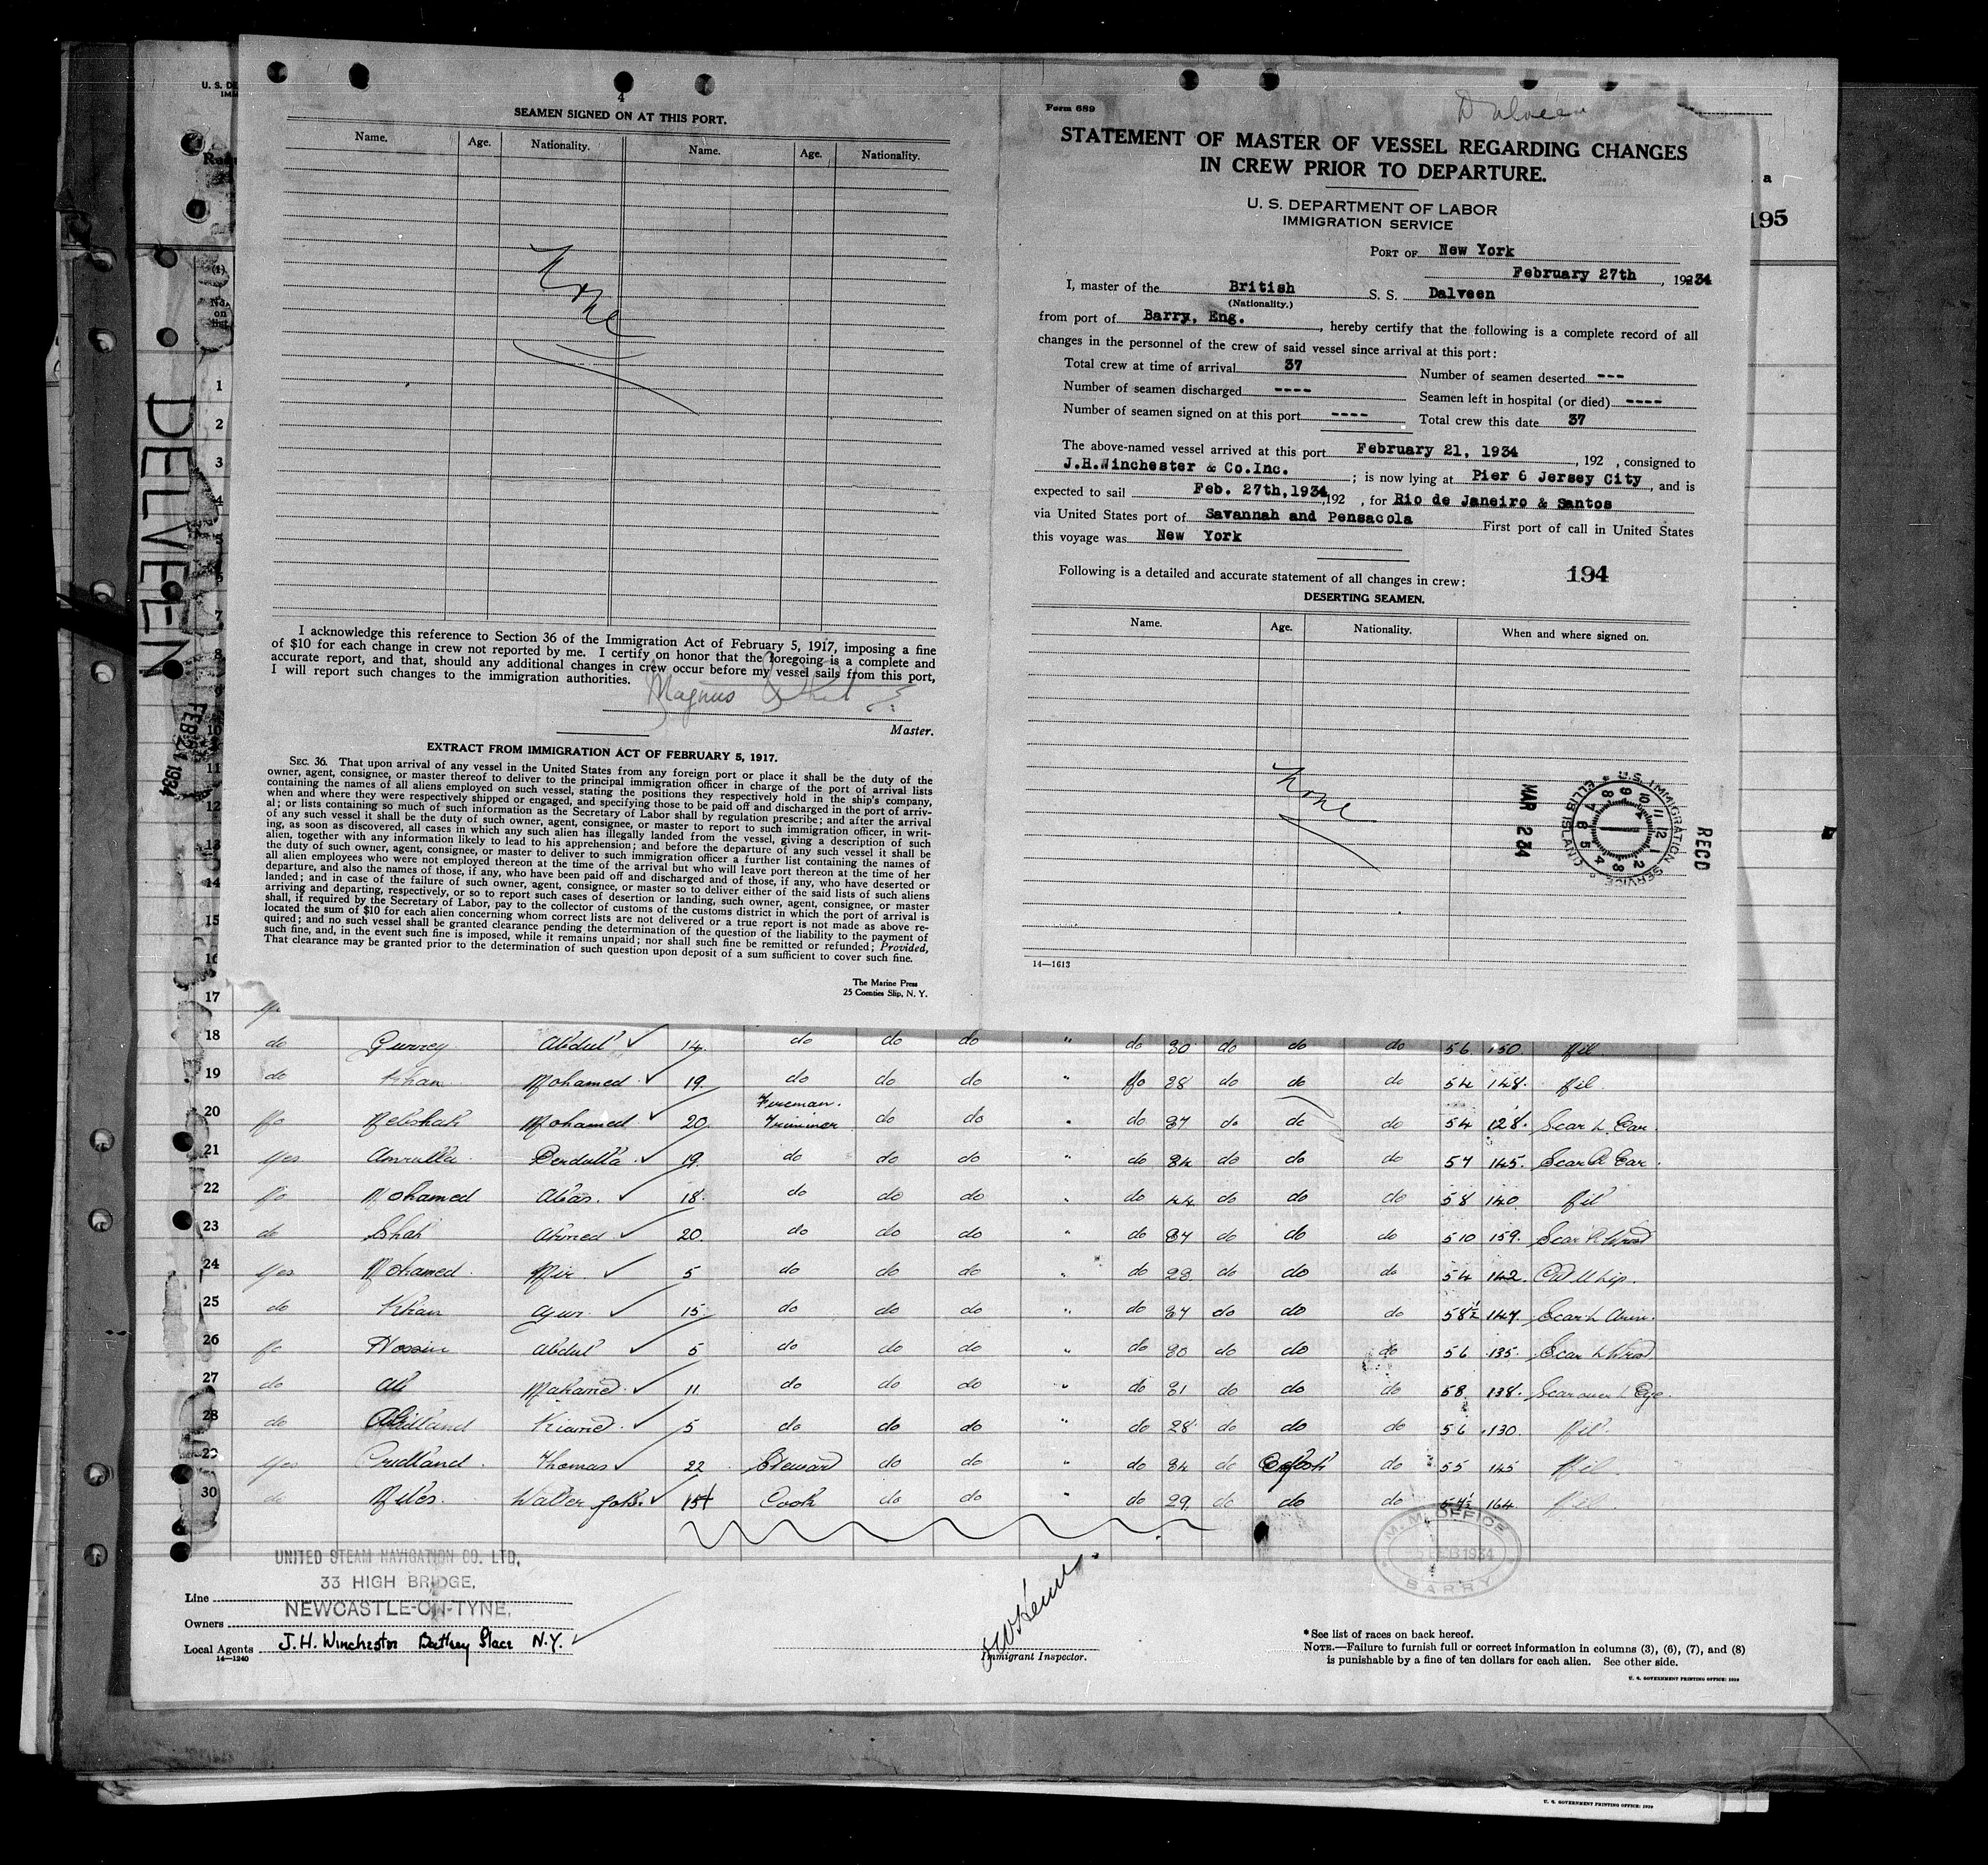 4
SEAMEN SIGNED ON AT THIS PORT.
Name. Age. Nationality. Name. Age. Nationality.
None
I acknowledge this reference to Section 36 of the Immigration Act of February 5, 1917, imposing a fine
of $10 for each change in crew not reported by me. I certify on honor that the foregoing is a complete and
accurate report, and that, should any additional changes in crew occur before my vessel sails from this port,
I will report such changes to the immigration authorities.
Magnus
Master.
EXTRACT FROM IMMIGRATION ACT OF FEBRUARY 5, 1917.
SEC. 36. That upon arrival of any vessel in the United States from any foreign port or place it shall be the duty of the
owner, agent, consignee, or master thereof to deliver to the principal immigration officer in charge of the port of arrival lists
containing the names of all aliens employed on such vessel, stating the positions they respectively hold in the ship's company,
when and where they were respectively shipped or engaged, and specifying those to be paid off and discharged in the port of arriv-
al; or lists containing so much of such information as the Secretary of Labor shall by regulation prescribe; and after the arrival
of any such vessel it shall be the duty of such owner, agent, consignee, or master to report to such immigration officer, in writ-
ing, as soon as discovered, all cases in which any such alien has illegally landed from the vessel, giving a description of such
alien, together with any information likely to lead to his apprehension; and before the departure of any such vessel it shall be
the duty of such owner, agent, consignee, or master to deliver to such immigration officer a further list containing the names of
all alien employees who were not employed thereon at the time of the arrival but who will leave port thereon at the time of her
departure, and also the names of those, if any, who have been paid off and discharged and of those, if any, who have deserted or
landed; and in case of the failure of such owner, agent, consignee, or master so to deliver either of the said lists of such aliens
arriving and departing, respectively, or so to report such cases of desertion or landing, such owner, agent, consignee, or master
shall, if required by the Secretary of Labor, pay to the collector of customs of the customs district in which the port of arrival is
located the sum of $10 for each alien concerning whom correct lists are not delivered or a true report is not made as above re-
quired; and no such vessel shall be granted clearance pending the determination of the question of the liability to the payment of
such fine, and, in the event such fine is imposed, while it remains unpaid; nor shall such fine be remitted or refunded; Provided,
That clearance may be granted prior to the determination of such question upon deposit of a sum sufficient to cover such fine.
The Marine Press
25 Coenties Slip, N. Y.
Form 689
Dalveen
STATEMENT OF MASTER OF VESSEL REGARDING CHANGES
IN CREW PRIOR TO DEPARTURE.
U. S. DEPARTMENT OF LABOR
IMMIGRATION SERVICE
PORT OF New York
February 27th, 19234
I, master of the British S. S. Dalveen
(Nationality.)
from port of Barry, Eng., hereby certify that the following is a complete record of all
changes in the personnel of the crew of said vessel since arrival at this port:
Total crew at time of arrival 37 Number of seamen deserted ---
Number of seamen discharged ---- Seamen left in hospital (or died) ----
Number of seamen signed on at this port ---- Total crew this date 37
The above-named vessel arrived at this port February 21, 1934, 192 , consigned to
J.H.Winchester & Co.Inc.; is now lying at Pier 6 Jersey City, and is
expected to sail Feb. 27th,1934,192 , for Rio de Janeiro & Santos
via United States port of Savannah and Pensacola First port of call in United States
this voyage was New York
Following is a detailed and accurate statement of all changes in crew: 194
DESERTING SEAMEN.
Name. Age. Nationality. When and where signed on.
None
RECD
U.S. IMMIGRATION SERVICE
ELLIS ISLAND
MAR 2 34
14—1613
195
DELVEEN
FEB 21 1934
1
2
3
4
5
6
7
8
10
11
12
13
14
15
16
17
18 do Gurrey Abdul 14. do do do " do 30 do do do 56 150. Nil
19 do Khan Mohamed 19. do do do " do 28 do do do 54 148. Nil
20 Mohamed 20 Fireman. Trimmer do do do 37 do do do 54 128. Scar L. Ear.
21 yes Amrulla 19. do do do " do 34 do do do 57 145. Scar R Ear.
22 Mohamed Abas. 18. do do do " do 44 do do do 58 140 Nil
23 do Shah Ahmed 20. do do do " do 37 do do do 510 159.
24 yes Mohamed. Mir 5 do do do " do 28. do do do 54 142.
25 do Khan 15 do do do " do 37 do do do 58½ 147. Scar L Arm.
26 Hossin Abdul 5 do do do " do 30 do do do 56 135.
27 do Ali Mohamed. 11. do do do " do 31 do do do 58. 138. Scar over L Eye.
28 do 5 do do do " do 28 do do do 56 130. Nil.
29 yes Thomas 22 Steward do do " do 34 do do 55 145 Nil
30 do Miles. Walter 15 Cook do do " do 29. do do do 164. Nil
M.M. OFFICE
1934
BARRY
UNITED STEAM NAVIGATION CO. LTD,
33 HIGH BRIDGE,
NEWCASTLE-ON-TYNE.
Line
Owners
Local Agents J.H. Winchester Battery Place N.Y.
14—1240
Immigrant Inspector.
* See list of races on back hereof.
NOTE.—Failure to furnish full or correct information in columns (3), (6), (7), and (8)
is punishable by a fine of ten dollars for each alien. See other side.
U. S. GOVERNMENT PRINTING OFFICE: 1929
U. S. GOVERNMENT PRINTING OFFICE: 1929